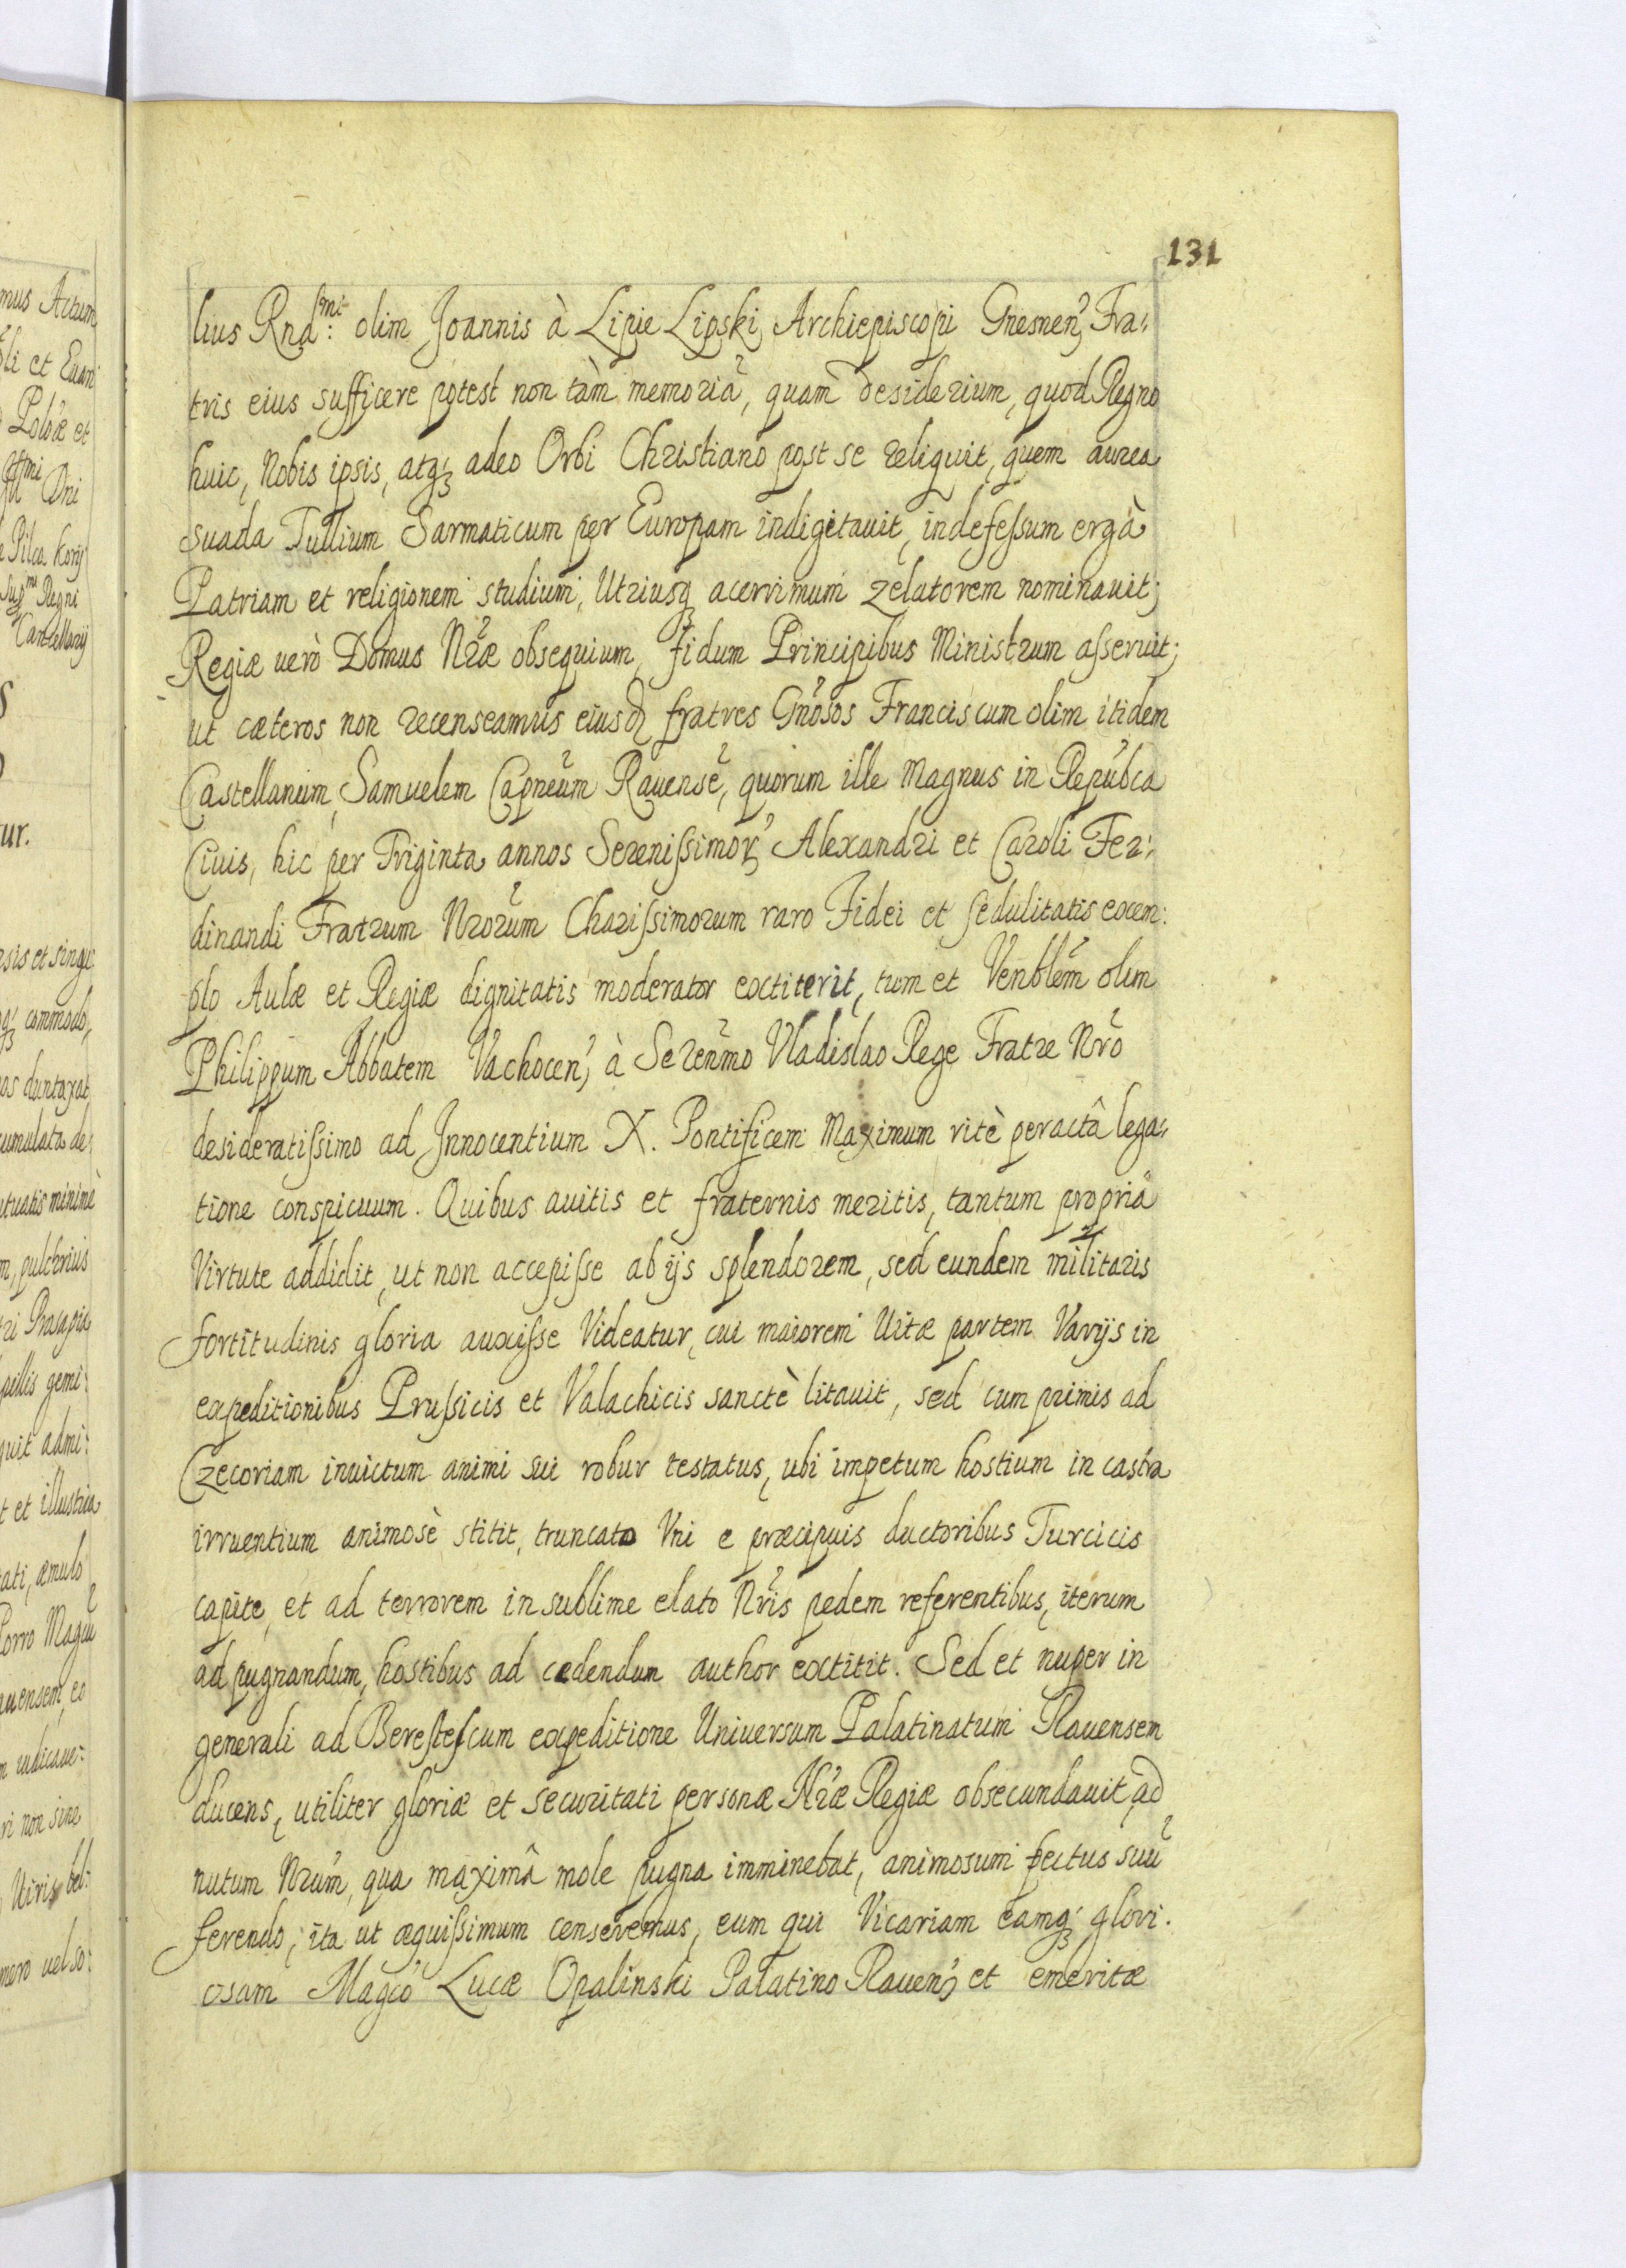 131
lius Rnd:ᵐⁱ olim Joannis à Lipie Lipski, Archiepiscopi Gnesnen, Fra:
tris eius sufficere potest non tàm memoriã, quam desiderium, quod Regno
huic, Nobis ipsis, atq₃ adeo Orbi Christiano post se reliquit, quem aurea
suada Tullium Sarmaticum per Europam indigitauit, indefessum ergà
Patriam et religionem studium, Utriusq₃ acerrimum zelatorem nominauit;
Regiæ uerò Domus Nræ obsequium, fidum Principibus Ministrum asseruit;
ut cæteros non recenseamus eiusd fratres Gnosos Franciscum olim itidem
Castellanum, Samuelem Capneum Rauensẽ, quorum ille Magnus in Republca
Ciuis, hic per Triginta annos Serenissimor Alexandri et Caroli Fer:
dinandi Fratrum Nrorum Charissimorum raro Fidei et sedulitatis exem:
plo Aulæ et Regiæ dignitatis moderator extiterit, tum et Venblem olim
Philippum Abbatem Vachocen, à Serenmo Vladislao Rege Fratre Nro
desideratissimo ad Innocentium X. Pontificem Maximum ritè peractâ lega:
tione conspicuum. Quibus auitis et fraternis meritis, tantum propriâ
Virtute addidit, ut non accepisse ab ijs splendorem, sed eundem militaris
fortitudinis gloria auxisse Videatur, cui maiorem Uitæ partem Varijs in
expeditionibus Prussicis et Valachicis sanctè litauit, sed cum primis ad
Czecoriam inuictum animi sui robur testatus, ubi impetum hostium in castra
irruentium animosè stitit, truncato Vni e præcipuis ductoribus Turcicis
capite, et ad terrorem in sublime elato Nris pedem referentibus, iterum
ad pugnandum, hostibus ad cedendum author extitit. Sed et nuper in
generali ad Berestescum expeditione Uniuersum Palatinatum Rauensem
ducens, utiliter gloriæ et securitati personæ Nræ Regiæ obsecundauit, ad
nutum Nrum, qua maximâ mole pugna imminebat, animosum pectus suũ
ferendo; ita ut æquissimum censeremus, eum qui Vicariam eamq₃ glori:
osam Magco Lucæ Opalinski Palatino Rauen, et emeritæ